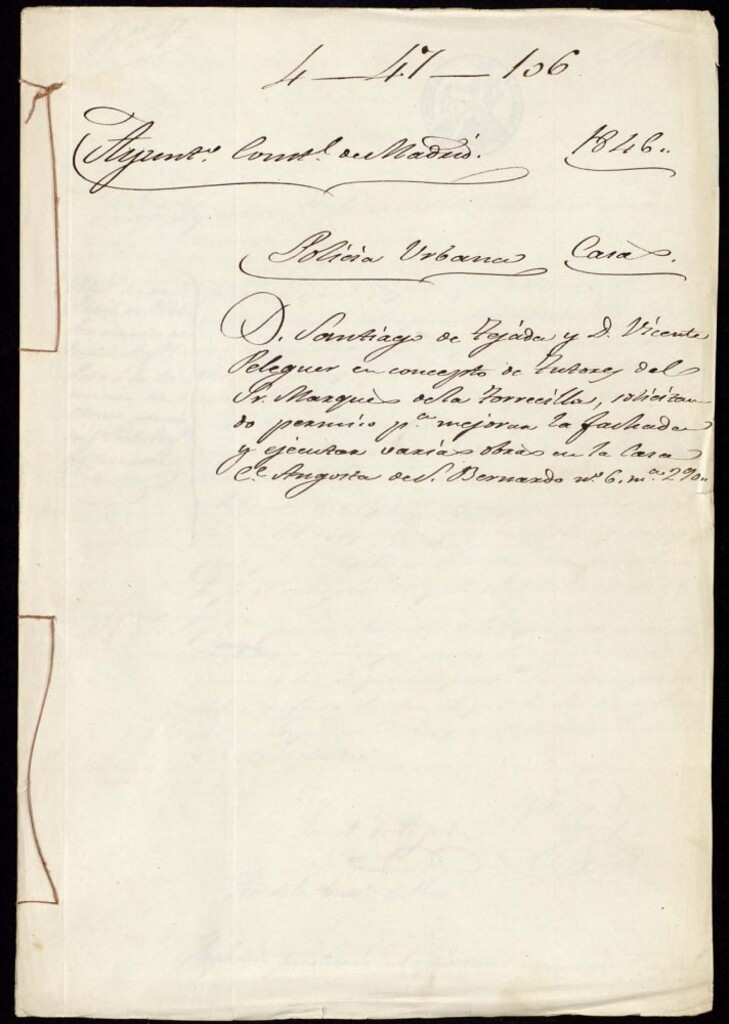 4-47-106
Ayunto. Constl. de Madrid. 1846..
Policia Urbana Casas.
D. Santiago de Tejada y D. Vicente
Peleguer en concepto de Tutores del
Sr. Marques de la Torrecilla, solicitan-
do permiso pa. mejorar la fachada
y ejecutar varias obras en la Casa
Ce. Angosta de S. Bernardo no. 6. ma. 290..